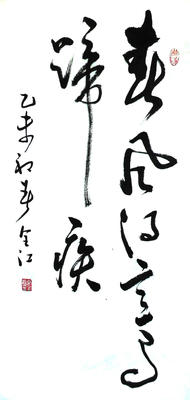 春风得意马
蹄疾
乙未初春金江